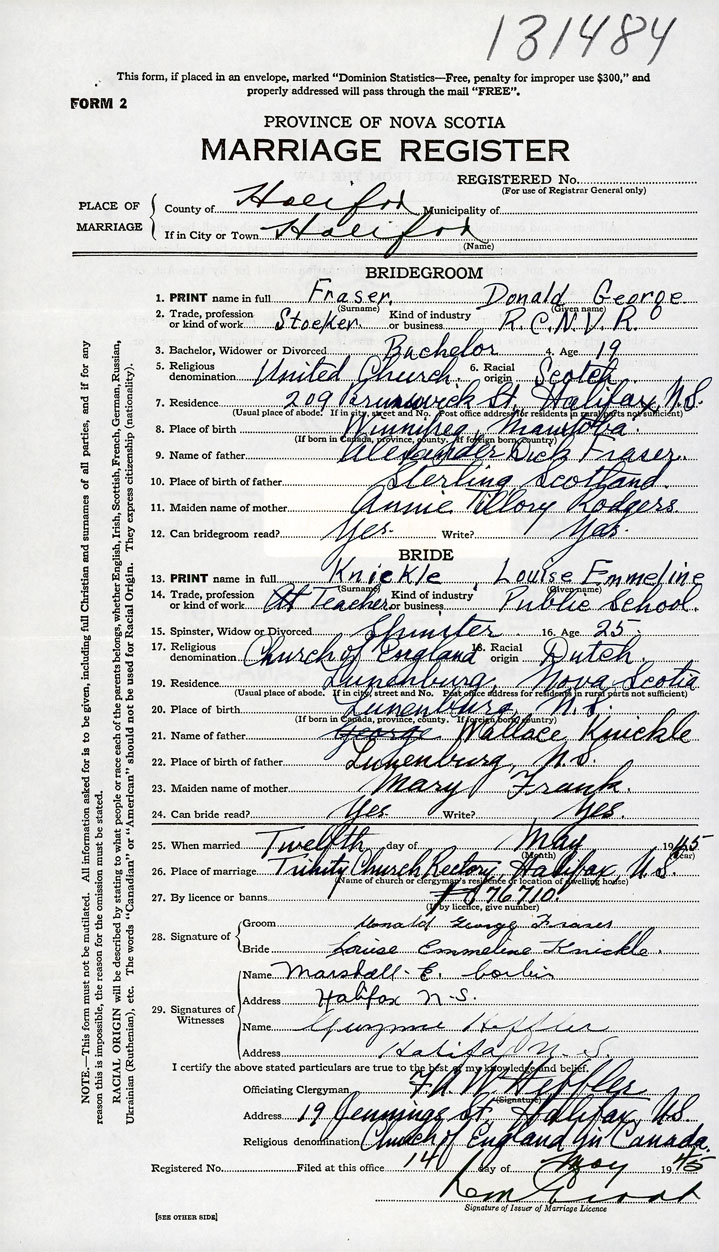 131484
This form, if placed in an envelope, marked "Dominion Statistics—Free, penalty for improper use $300," and
properly addressed will pass through the mail "FREE".
FORM 2
PROVINCE OF NOVA SCOTIA
MARRIAGE REGISTER
REGISTERED No.
(For use of Registrar General only)
PLACE OF MARRIAGE
County of Halifax Municipality of
If in City or Town Halifax
(Name)
BRIDEGROOM
1. PRINT name in full Fraser, Donald George
(Surname) (Given name)
2. Trade, profession or kind of work Stoeker. Kind of industry or business R.C.N.V.R.
3. Bachelor, Widower or Divorced Bachelor 4. Age 19
5. Religious denomination United Church. 6. Racial origin Scotch.
7. Residence 209 Brunswick St, Halifax, N.S.
(Usual place of abode. If in city, street and No. Post office address for residents in rural parts not sufficient)
8. Place of birth Winnipeg, Manitoba.
(If born in Canada, province, county. If foreign born, country)
9. Name of father Alexander Dick Fraser.
10. Place of birth of father Sterling Scotland.
11. Maiden name of mother Annie Rodgers
12. Can bridegroom read? Yes. Write? Yes.
BRIDE
13. PRINT name in full Knickle, Louise Emmeline
(Surname) (Given name)
14. Trade, profession or kind of work Teacher Kind of industry or business Public School.
15. Spinster, Widow or Divorced Spinster 16. Age 25
17. Religious denomination Church of England 18. Racial origin Dutch.
19. Residence Lunenburg, Nova Scotia
(Usual place of abode. If in city, street and No. Post office address for residents in rural parts not sufficient)
20. Place of birth Lunenburg, N.S.
(If born in Canada, province, county. If foreign born, country)
21. Name of father George Wallace Knickle
22. Place of birth of father Lunenburg, N.S.
23. Maiden name of mother Mary Frank.
24. Can bride read? Yes. Write? Yes.
25. When married Twelfth day of May 1945
(Month) (Year)
26. Place of marriage Trinity Church Rectory, Halifax, N.S.
(Name of church or clergyman's residence or location of dwelling house)
27. By licence or banns 76710.
(If by licence, give number)
28. Signature of
Groom Donald George Fraser
Bride Louise Emmeline Knickle.
29. Signatures of Witnesses
Name Marshall E.
Address Halifax N.S.
Name Heffler
Address Halifax N.S.
I certify the above stated particulars are true to the best of my knowledge and belief.
Officiating Clergyman F.A.W. Heffler
(Signature)
Address 19 Jennings St, Halifax, NS
Religious denomination Church of England in Canada.
Registered No. Filed at this office 14 day of May 1945
Signature of Issuer of Marriage Licence
[SEE OTHER SIDE]
NOTE.—This form must not be mutilated. All information asked for is to be given, including full Christian and surnames of all parties, and if for any
reason this is impossible, the reason for the omission must be stated.
RACIAL ORIGIN will be described by stating to what people or race each of the parents belongs, whether English, Irish, Scottish, French, German, Russian,
Ukrainian (Ruthenian), etc. The words "Canadian" or "American" should not be used for Racial Origin. They express citizenship (nationality).